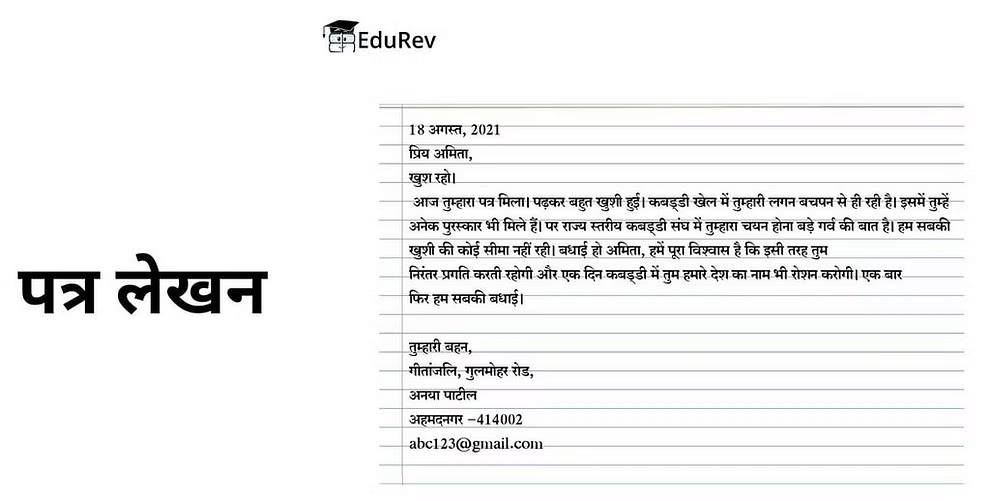 EduRev
पत्र लेखन
18 अगस्त, 2021
प्रिय अमिता,
खुश रहो।
आज तुम्हारा पत्र मिला। पढ़कर बहुत खुशी हुई। कबड्डी खेल में तुम्हारी लगन बचपन से ही रही है। इसमें तुम्हें
अनेक पुरस्कार भी मिले हैं। पर राज्य स्तरीय कबड्डी संघ में तुम्हारा चयन होना बड़े गर्व की बात है। हम सबकी
खुशी की कोई सीमा नहीं रही। बधाई हो अमिता, हमें पूरा विश्वास है कि इसी तरह तुम
निरंतर प्रगति करती रहोगी और एक दिन कबड्डी में तुम हमारे देश का नाम भी रोशन करोगी। एक बार
फिर हम सबकी बधाई।
तुम्हारी बहन,
गीतांजलि, गुलमोहर रोड,
अनया पाटील
अहमदनगर –414002
abc123@gmail.com